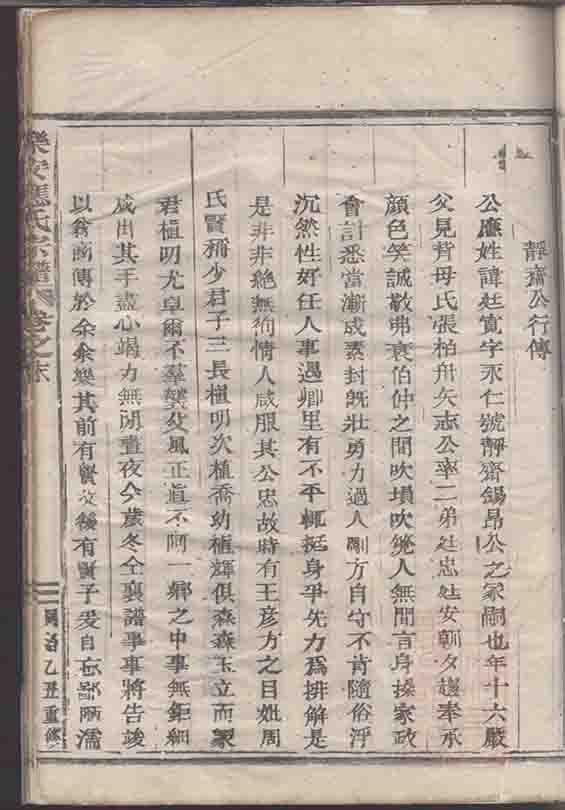 靜齋公行傳
公應姓諱廷寬字永仁號靜齋錫昂公之冢嗣也年十六嚴
父見背母氏張柏舟矢志公率二弟廷忠廷安朝夕趨奉承
顏色笑誠敬弗衰伯仲之間吹塤吹箎人無間言身操家政
會計悉當漸成素封旣壯勇力過人剛方自守不肯隨俗浮
沉然性好任人事遇鄉里有不平輒挺身爭先力爲排解是
是非非絶無徇情人咸服其公忠故時有王彦方之目妣周
氏賢稱少君子三長植明次植喬幼植輝俱森森玉立而冢
君植明尤卓爾不羣襲父風正直不阿一鄉之中事無鉅細
咸出其手盡心竭力無閒晝夜今歲冬仝襄譜事事將告竣
以翁商傳於余余樂其前有賢父後有賢子爰自忘鄙陋濡
樂安應氏宗譜 卷之末
同治乙丑重修